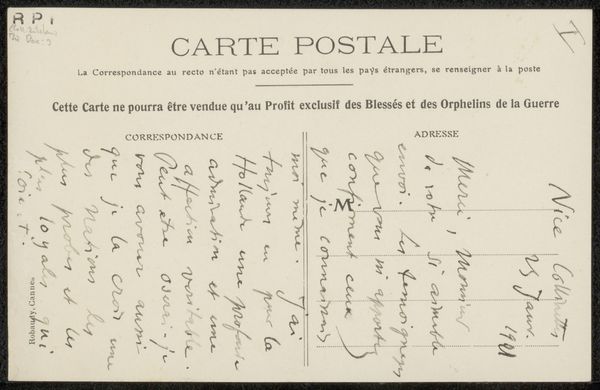 RPI
CARTE POSTALE
La Correspondance au recto n'étant pas acceptée par tous les pays étrangers, se renseigner à la poste
Cette Carte ne pourra être vendue qu'au Profit exclusif des Blessés et des Orphelins de la Guerre
CORRESPONDANCE
ADRESSE
M
Nice
25 Janv. 1921
Merci, Monsieur
de votre si aimable
envoi. Les témoignages
que vous m'apportez
confirment ceux
que je connaissais
moi même. J'ai
toujours eu pour la
Hollande une profonde
admiration et une
affection véritable.
Peut être oserai-je
vous avouer aussi
que je la crois une
des nations les
plus probes et les
plus loyales qui
soient.
Robaudy, Cannes